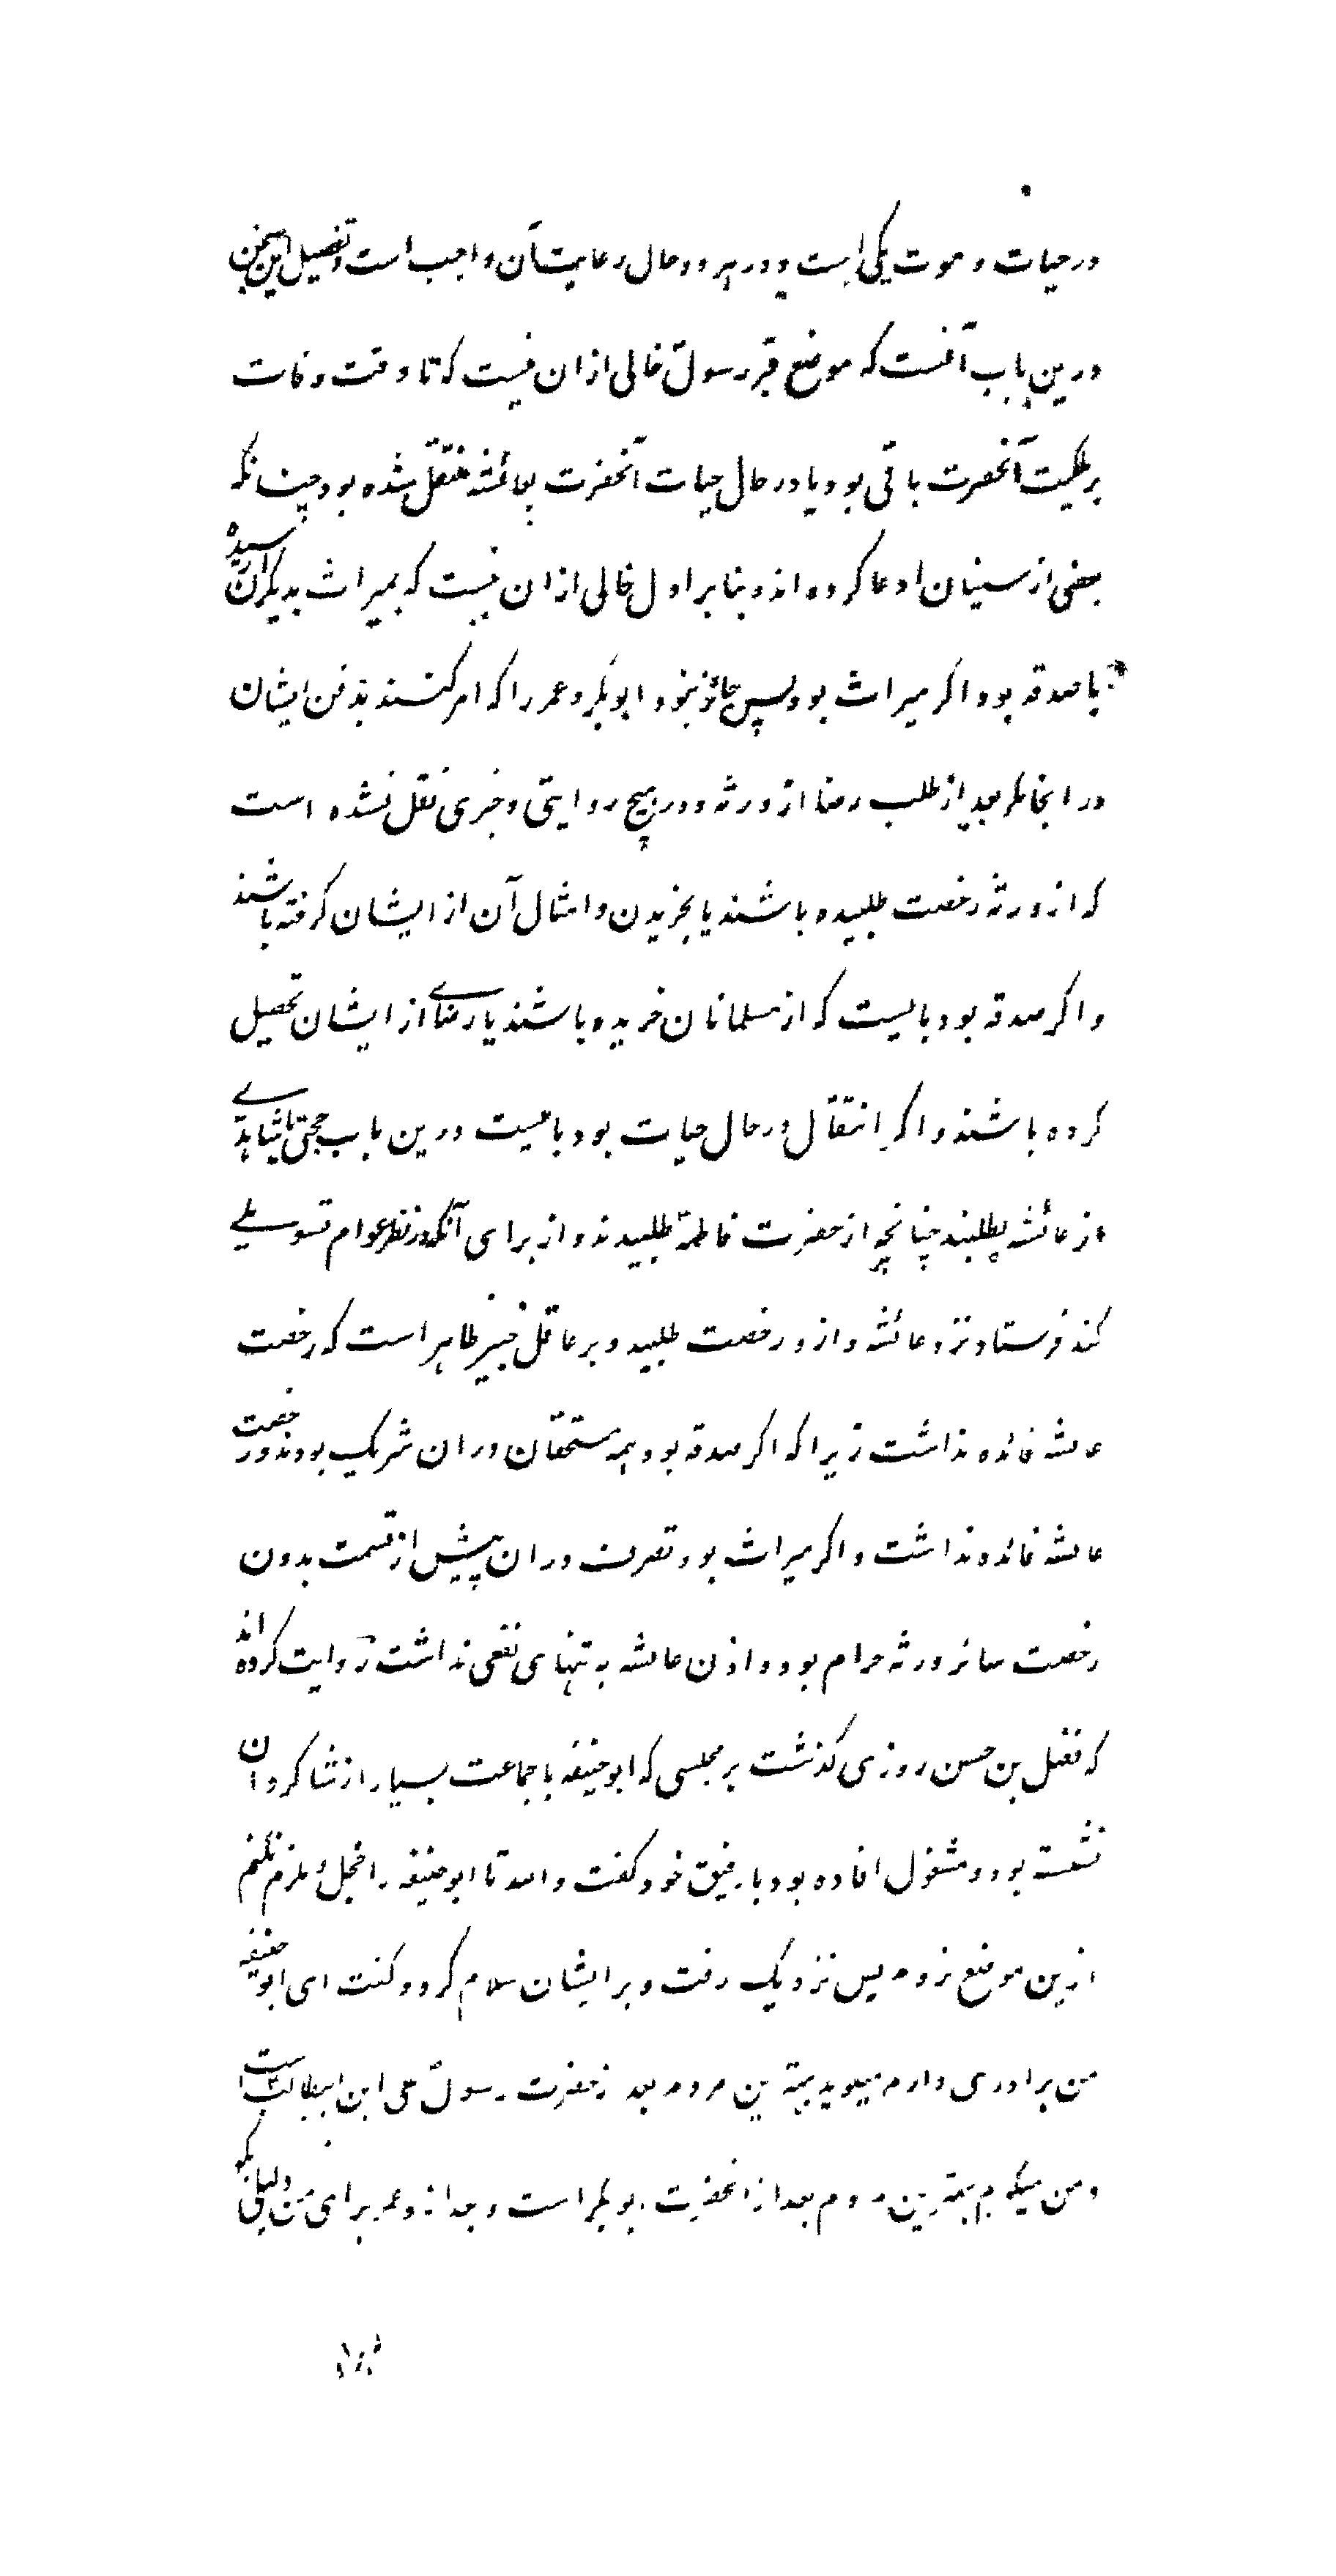 در حیات و موت یکی است و در هر دو حال رعایت آن واجب است و تفصیل این سخن
درین باب آنست که موضع قبر رسول خالی ازان نیست که تا وقت وفات
بر ملکیت آنحضرت باقی بود یا در حال حیات آنحضرت بعائشه منتقل شده بود چنانکه
بعضی از سنیان ادعا کرده اند و بنا بر اول خالی ازان نیست که بمیراث بدیکران رسیده
یا صدقه بود اکر میراث بود پس جائز نبود ابوبکر و عمر را که امر کنند بدفن ایشان
در انجا مکر بعد از طلب رضا از ورثه و در هیچ روایتی و خبری نقل نشده است
که از ورثه رخصت طلبیده باشند یا بخریدن و امثال آن از ایشان کرفته باشند
و اکر صدقه بود بایست که از مسلمانان خریده باشند یا رضای از ایشان تحصیل
کرده باشند و اکر انتقال در حال حیات بود بایست درین باب حجتی یا شاهدی
از عائشه بطلبند چنانچه از حضرت فاطمه طلبیدند و از برای آنکه در نظر عوام تسویلی
کند فرستاد نزد عائشه و ازو رخصت طلبید و بر عاقل خبیر ظاهر است که رخصت
عائشه فائده نداشت زیرا که اکر صدقه بود همه مستحقان دران شریک بودند و رخصت
عائشه فائده نداشت و اکر میراث بود تصرف دران پیش از قسمت بدون
رخصت سائر ورثه حرام بود و اذن عائشه به تنهای نفعی نداشت روایت کرده اند
که فضل بن حسن روزی کذشت بر مجلسی که ابو حنیفه با جماعت بسیار از شاکردان
نشسته بود و مشغول افاده بود با رفیق خود کفت والله تا ابو حنیفه را خجل و ملزم نکنم
ازین موضع نروم پس نزدیک رفت و بر ایشان سلام کرد و کفت ای ابو حنیفه
من برادری دارم میکوید بهترین مردم بعد از حضرت رسول علی ابن ابیطالب است
و من میکویم بهترین مردم بعد از انحضرت ابوبکر است و بعد ازو عمر برای من دلیلی بکو